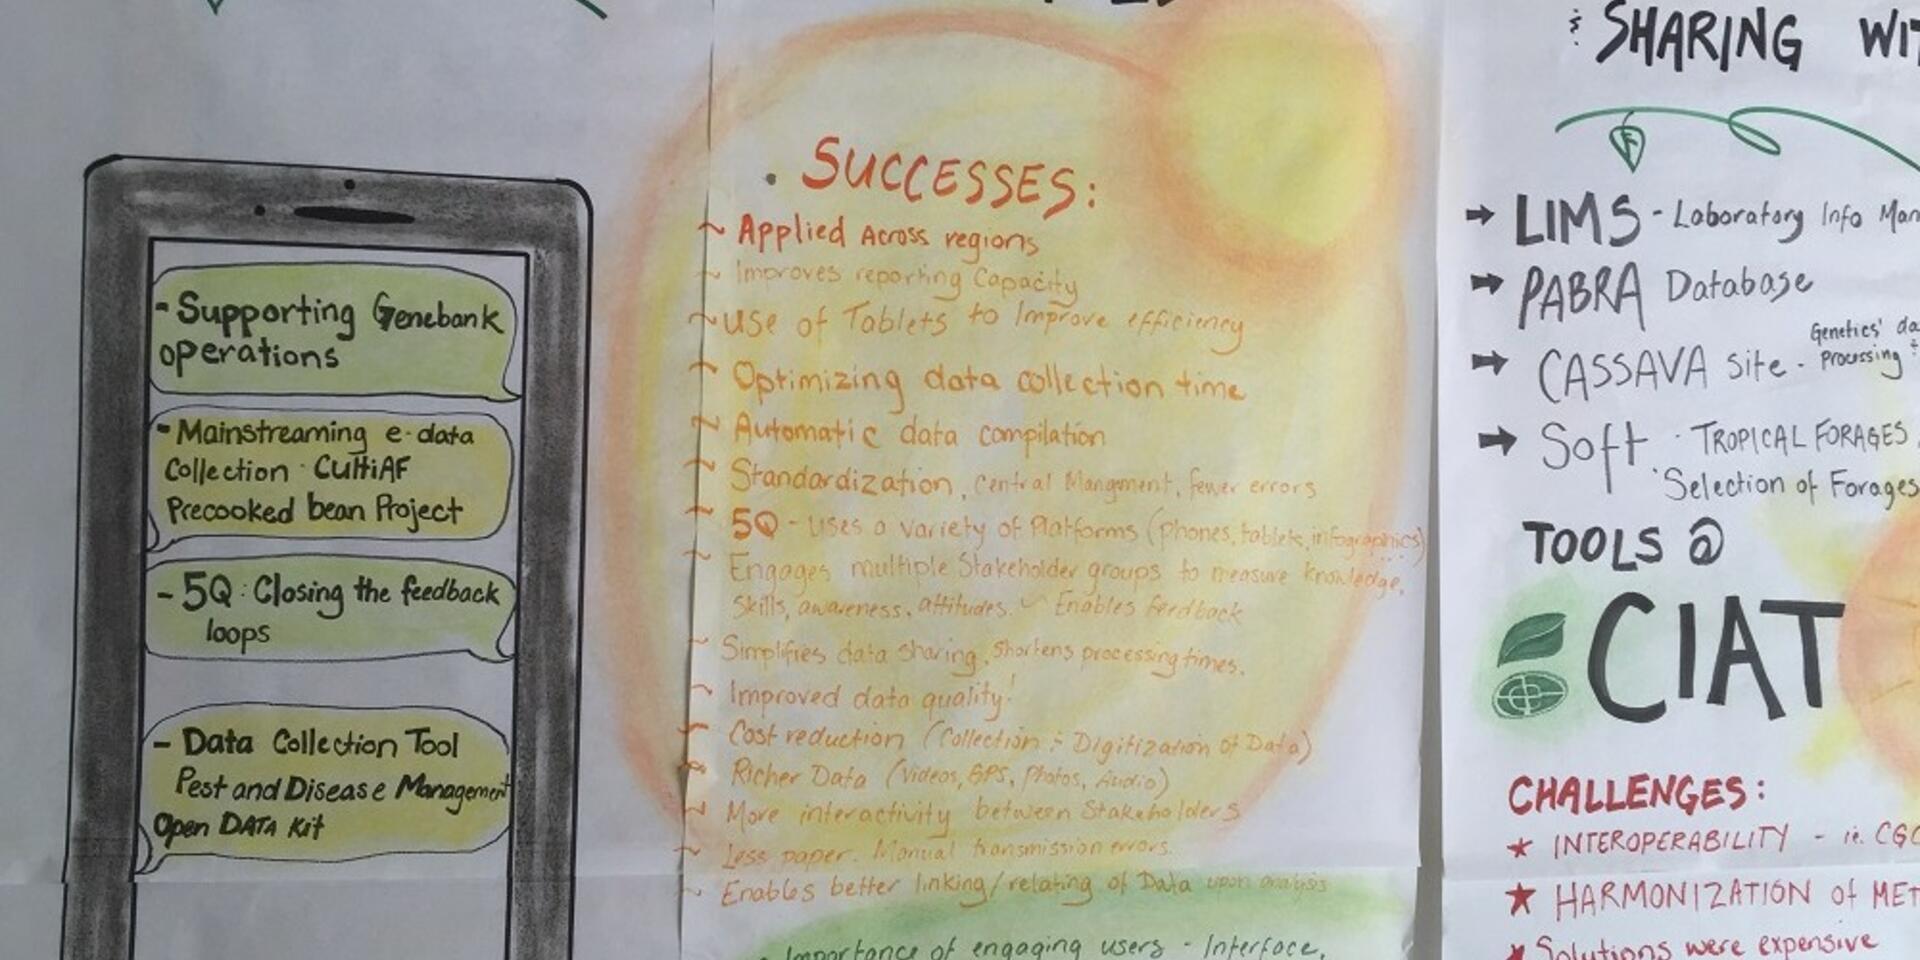 - Supporting Genebank
operations
- Mainstreaming e-data
Collection · CultiAF
Precooked bean Project
- 5Q : Closing the feedback
loops
- Data Collection Tool
Pest and Disease Management
Open DATA Kit
• SUCCESSES:
~ Applied Across regions
~ Improves reporting Capacity
~ use of Tablets to Improve efficiency
~ Optimizing data collection time
~ Automatic data compilation
~ Standardization, central Mangment, fewer errors
~ 5Q - uses a variety of Platforms (phones, tablets, infographics)
~ Engages multiple Stakeholder groups to measure knowledge,
skills, awareness, attitudes. ~ Enables feedback
~ Simplifies data sharing, shortens processing times.
~ Improved data quality!
~ Cost reduction (Collection & Digitization of Data)
~ Richer Data (Videos, GPS, Photos, Audio)
~ More interactivity between Stakeholders
~ Less paper. Manual transmission errors.
~ Enables better linking/relating of Data upon analysis
• Importance of engaging users - Interface,
& SHARING WIT
→ LIMS - Laboratory Info Man
→ PABRA Database
→ CASSAVA site - Genetics' da
Processing &
→ Soft · TROPICAL FORAGES
· Selection of Forages
TOOLS @
CIAT
CHALLENGES:
★ INTEROPERABILITY - ie. CGC
★ HARMONIZATION of MET
★ Solutions were expensive